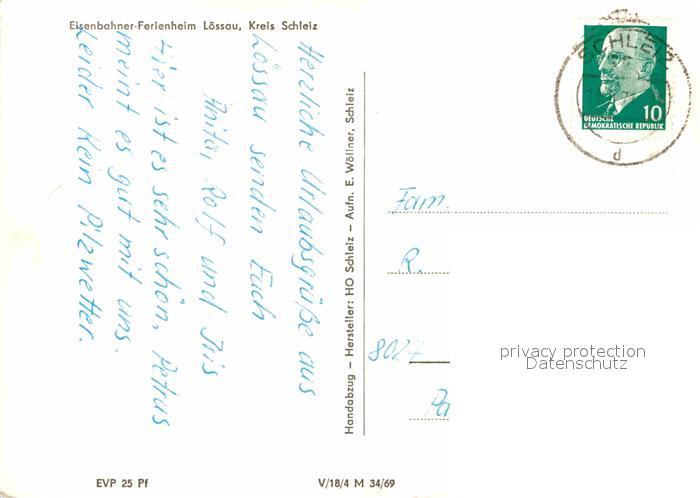 Eisenbahner-Ferienheim Lössau, Kreis Schleiz
Herzliche Urlaubsgrüße aus
Lössau senden Euch
Anita, Rolf und Iris
Hier ist es sehr schön, Petrus
meint es gut mit uns.
Leider kein Pilzwetter.
Handabzug – Hersteller: HO Schleiz – Aufn. E. Wöllner, Schleiz
SCHLEIZ
d
10
DEUTSCHE
DEMOKRATISCHE REPUBLIK
Fam.
R.
8027
Pa
privacy protection
Datenschutz
EVP 25 Pf
V/18/4 M 34/69